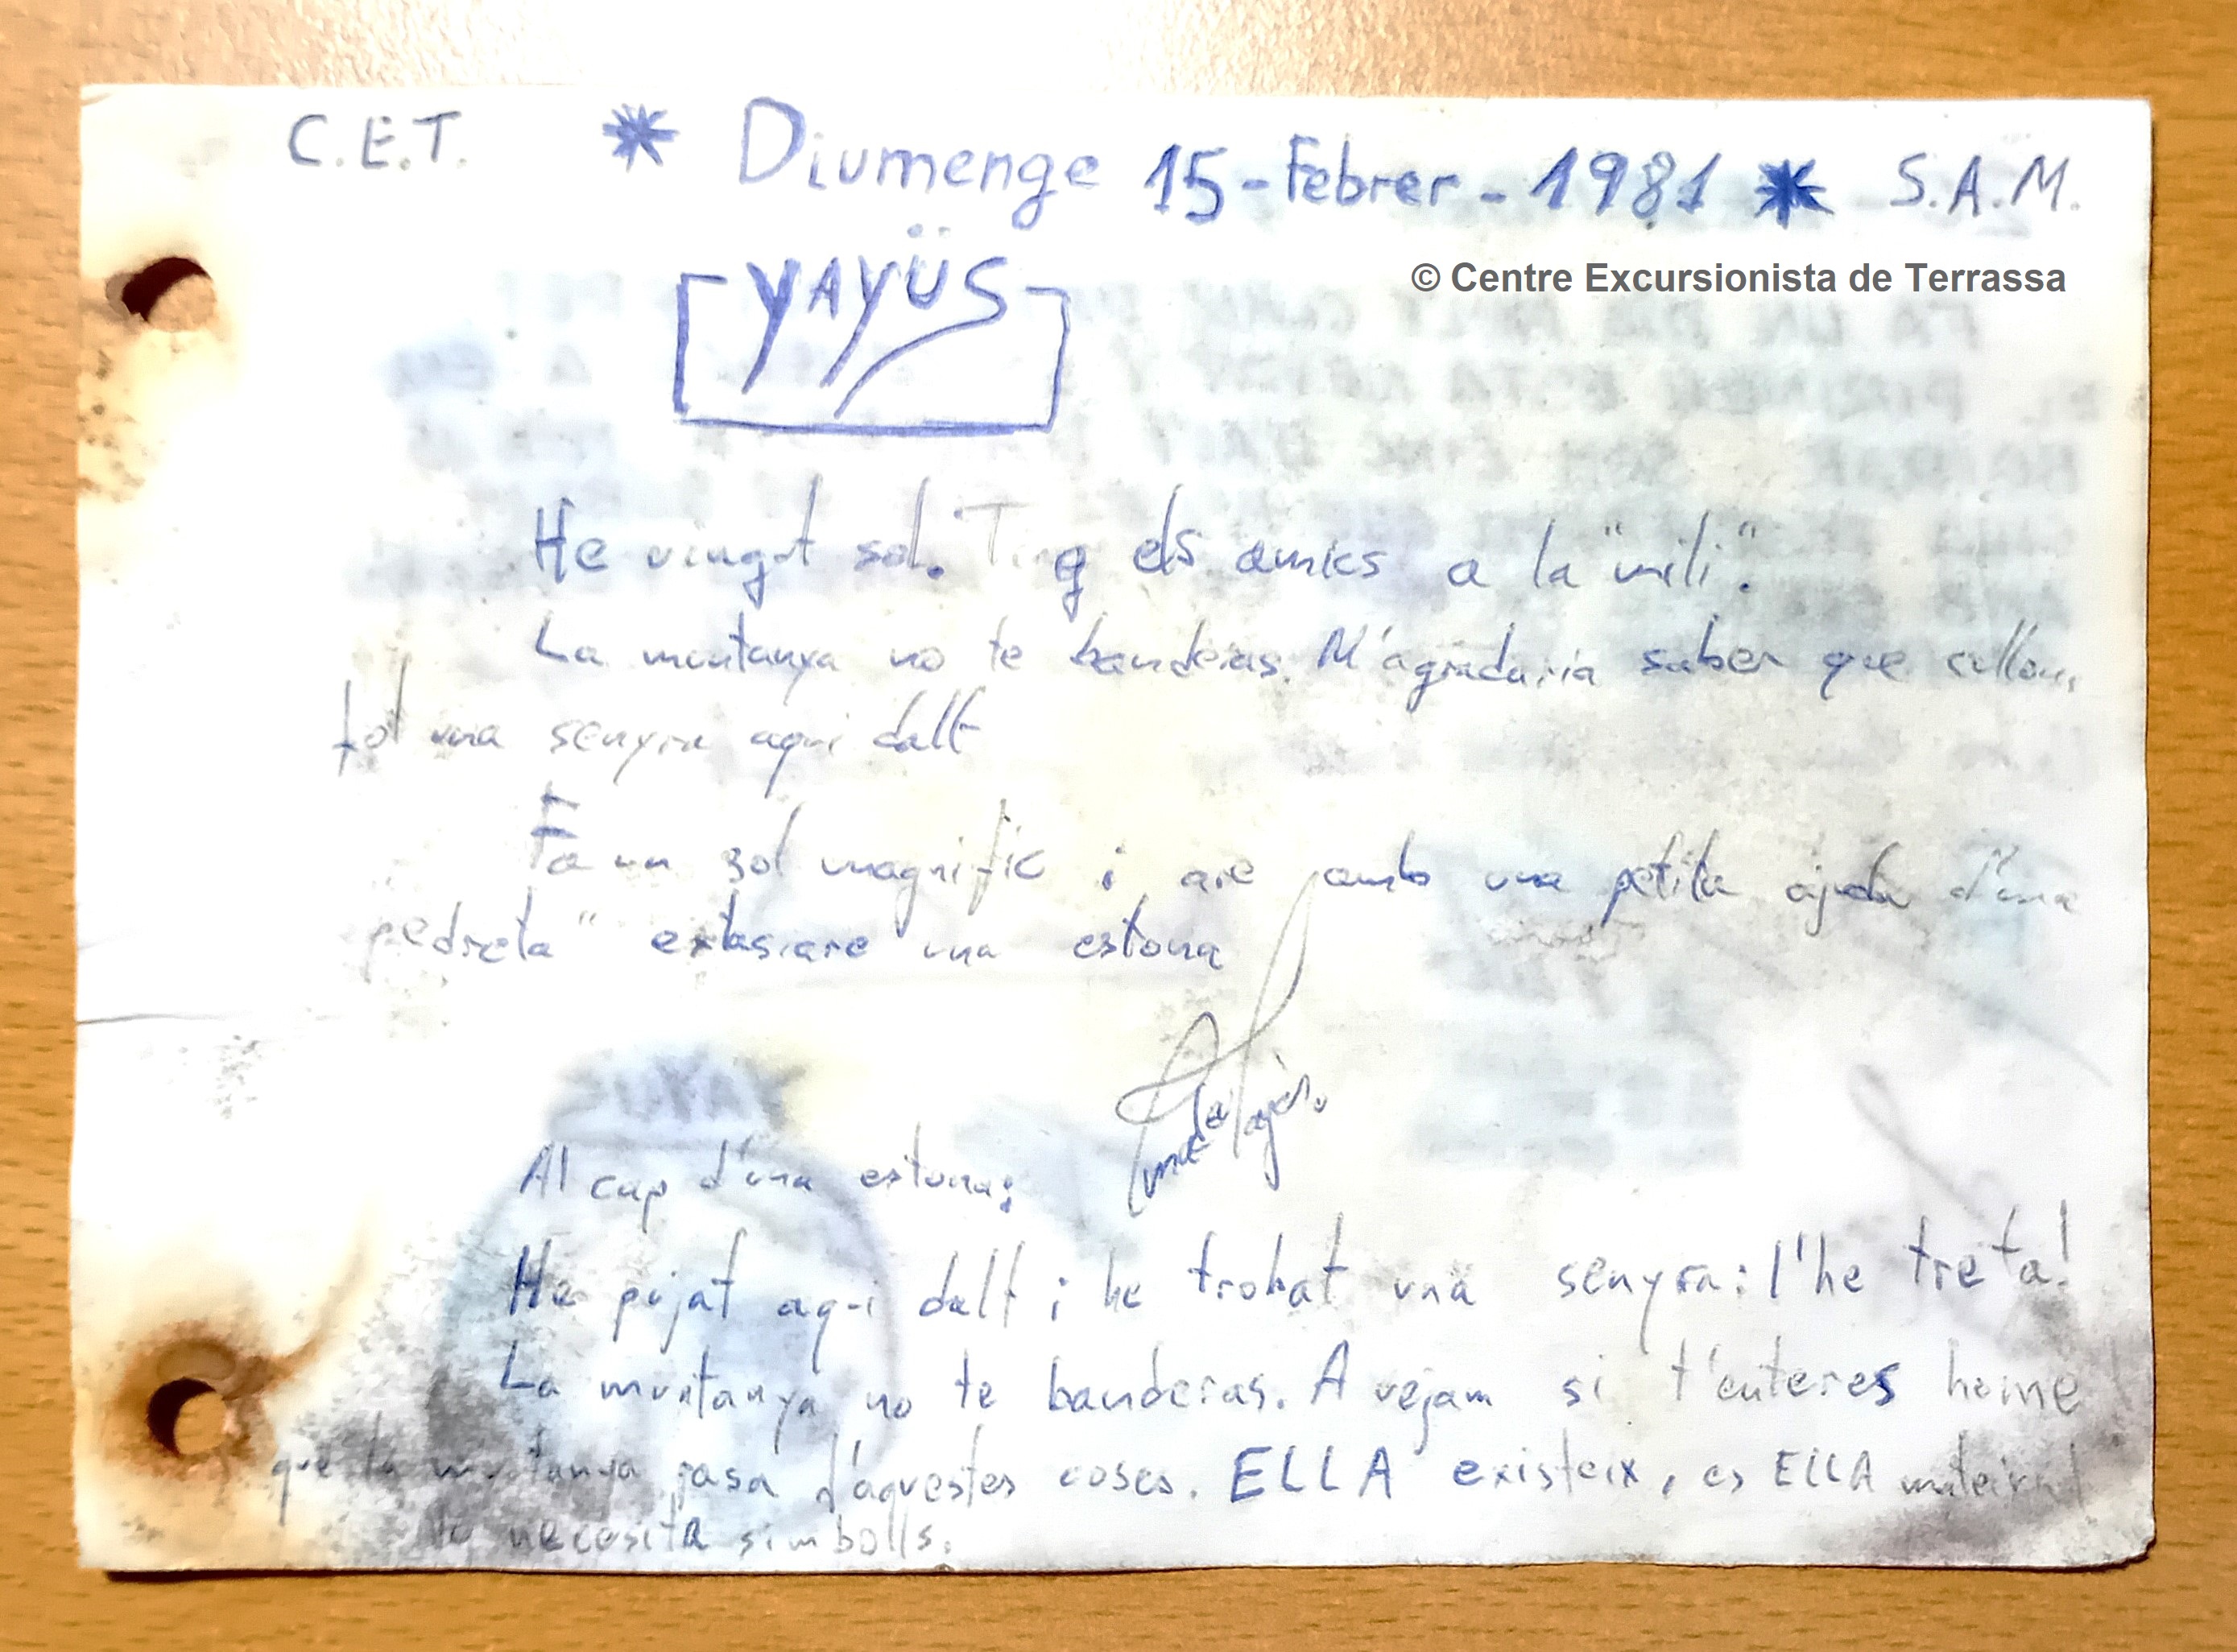 C.E.T. * Diumenge 15-Febrer-1981 * S.A.M.
© Centre Excursionista de Terrassa
YAYÜS
He vingut sol. Tinc els amics a la "mili".
La muntanya no te banderas. M'agradaria saber que collons
fot una senyra aqui dalt
Fa un sol magnific i are amb una petita ajuda d'una
pedreta" extasiare una estona
Al cap d'una estona:
He pujat aqui dalt i he trobat una senyra: l'he treta!
La muntanya no te banderas. A vejam si t'enteres home
que la muntanya pasa d'aquestes coses. ELLA existeix, es ELLA mateixa!
No necesita simbolls.